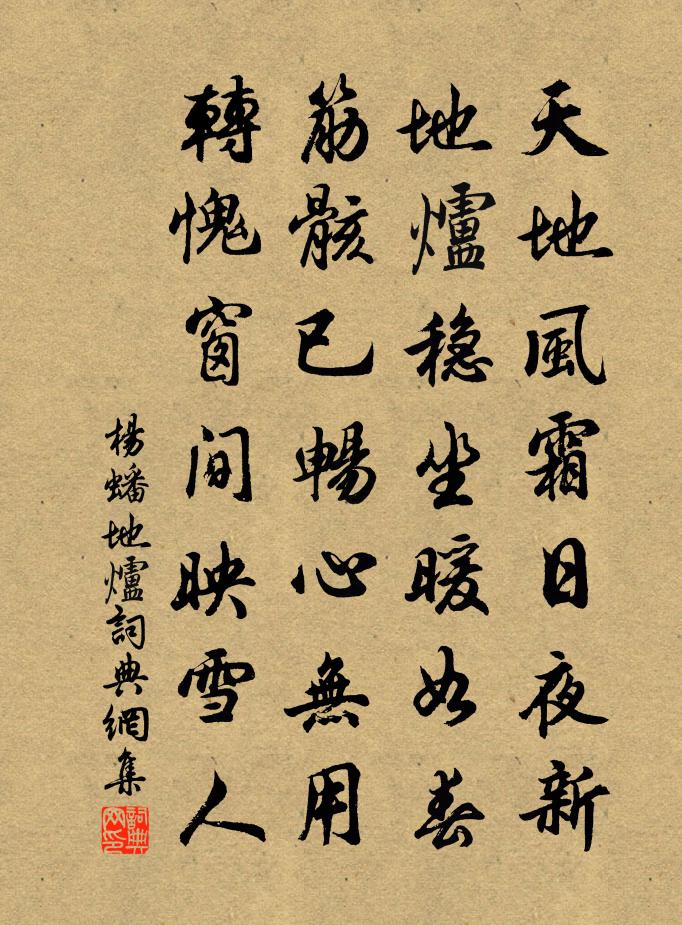 天地風霜日夜新
地爐穩坐暖如春
筋骸已暢心無用
轉愧窗間映雪人
楊蟠地爐詞典網集
詞典網印